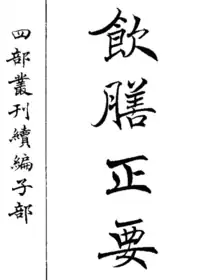 飲膳正要
四部叢刊續編子部